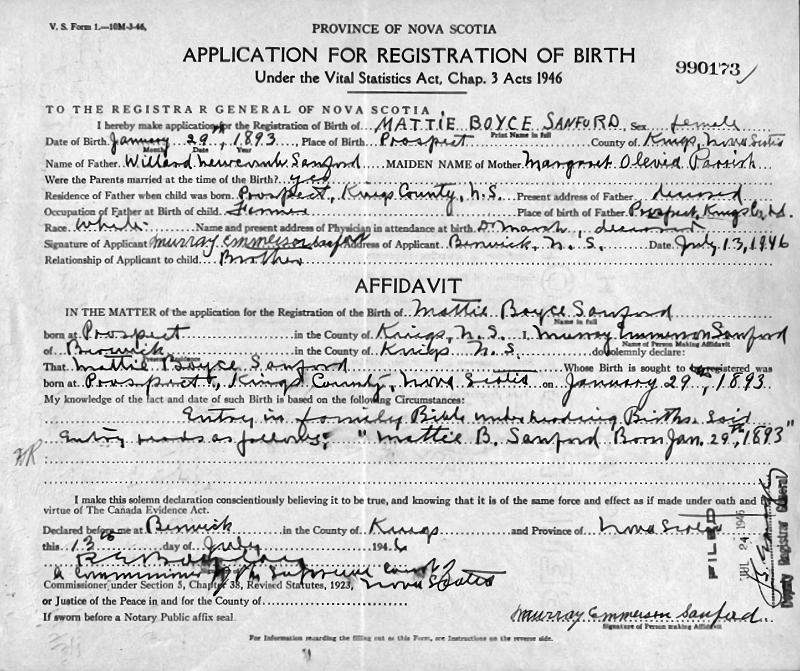 V. S. Form 1.—10M-3-46,
PROVINCE OF NOVA SCOTIA
APPLICATION FOR REGISTRATION OF BIRTH
990173
Under the Vital Statistics Act, Chap. 3 Acts 1946
TO THE REGISTRAR GENERAL OF NOVA SCOTIA
I hereby make application for the Registration of Birth of MATTIE BOYCE SANFORD, Sex female
Print Name in full
Date of Birth January 29th, 1893 Place of Birth Prospect County of Kings, Nova Scotia
Month Date Year
Name of Father Willard Sanford MAIDEN NAME of Mother Margaret Olevia Parrish
Were the Parents married at the time of the Birth? yes
Residence of Father when child was born Prospect, Kings County, N.S. Present address of Father deceased
Occupation of Father at Birth of child Farmer Place of birth of Father Prospect, Kings Co, N.S.
Race White Name and present address of Physician in attendance at birth Dr Marsh, deceased
Signature of Applicant Murray Emmerson Sanford Address of Applicant Berwick, N.S. Date July 13, 1946
Relationship of Applicant to child Brother
AFFIDAVIT
IN THE MATTER of the application for the Registration of the Birth of Mattie Boyce Sanford
Name in full
born at Prospect in the County of Kings, N.S. I, Murray Emmerson Sanford
Name of Person Making Affidavit
of Berwick in the County of Kings N.S. do solemnly declare:
Present Residence
That Mattie Boyce Sanford Whose Birth is sought to be registered was
born at Prospect, Kings County, Nova Scotia on January 29th, 1893
My knowledge of the fact and date of such Birth is based on the following Circumstances:
Entry in family Bible under heading Births. Said
Entry reads as follows: "Mattie B. Sanford Born Jan. 29th, 1893"
I make this solemn declaration conscientiously believing it to be true, and knowing that it is of the same force and effect as if made under oath and by
virtue of The Canada Evidence Act.
Declared before me at Berwick in the County of Kings and Province of Nova Scotia
this 13th day of July 1946
A Commissioner of the Supreme Court of Nova Scotia
Commissioner under Section 5, Chapter 38, Revised Statutes, 1923,
or Justice of the Peace in and for the County of
If sworn before a Notary Public affix seal.
Murray Emmerson Sanford
Signature of Person making Affidavit
FILED
JUL 24 1946
Deputy Registrar General
For Information regarding the filling out of this Form, see Instructions on the reverse side.